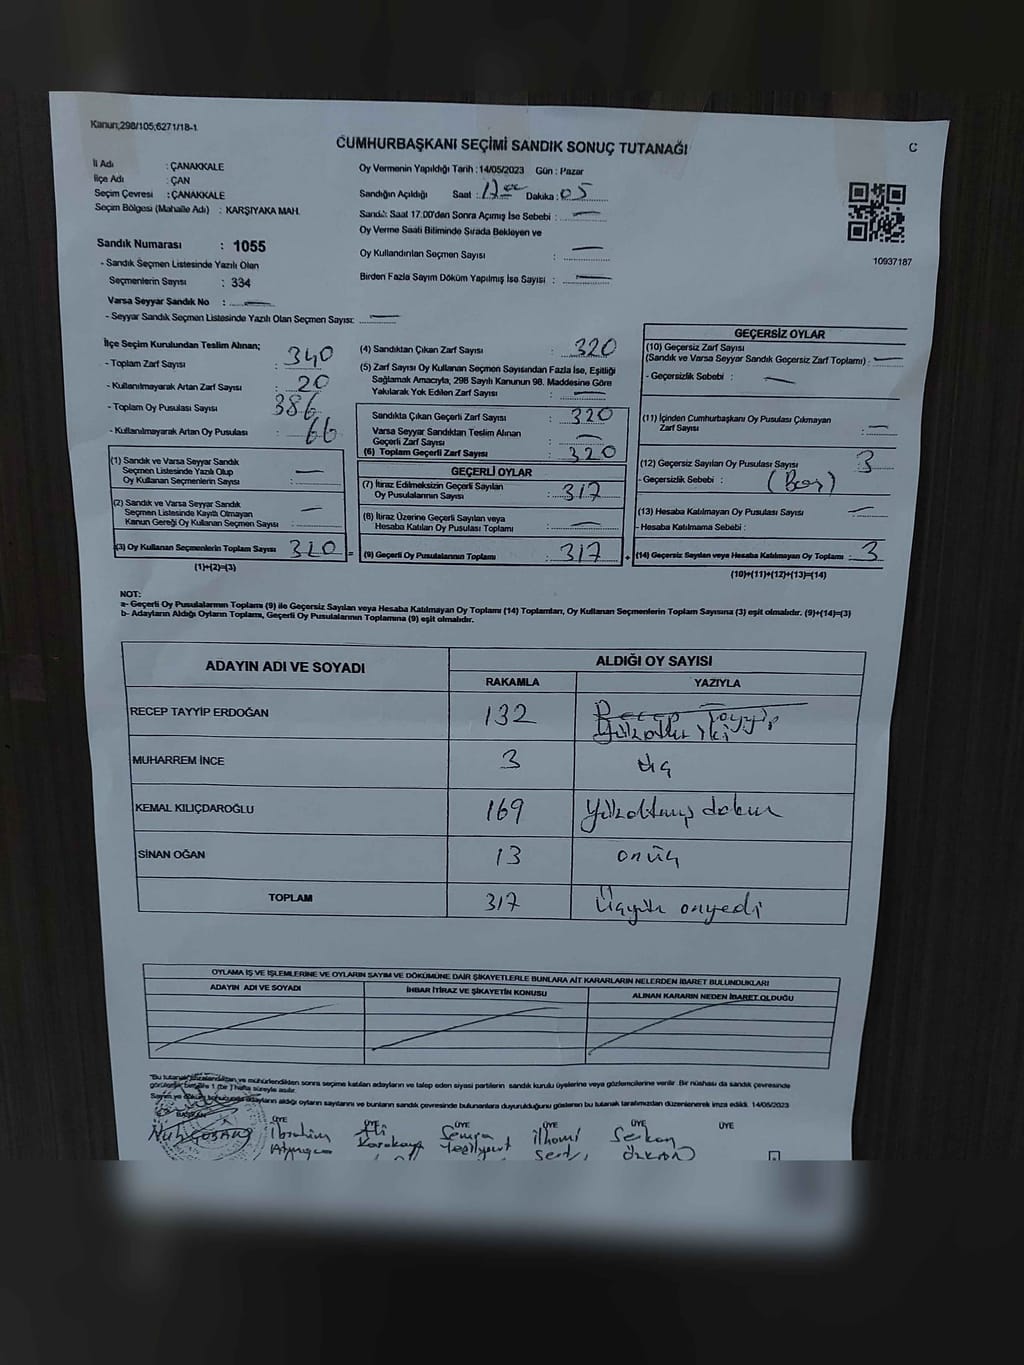 Kanun;298/105;6271/18-1
CUMHURBAŞKANI SEÇİMİ SANDIK SONUÇ TUTANAĞI
C
İl Adı : ÇANAKKALE
İlçe Adı : ÇAN
Seçim Çevresi : ÇANAKKALE
Seçim Bölgesi (Mahalle Adı) : KARŞIYAKA MAH.
Sandık Numarası : 1055
- Sandık Seçmen Listesinde Yazılı Olan
Seçmenlerin Sayısı : 334
Varsa Seyyar Sandık No :
- Seyyar Sandık Seçmen Listesinde Yazılı Olan Seçmen Sayısı:
Oy Vermenin Yapıldığı Tarih : 14/05/2023 Gün : Pazar
Sandığın Açıldığı Saat : Dakika : 05
Sandık Saat 17.00'den Sonra Açımış İse Sebebi :
Oy Verme Saati Bitiminde Sırada Bekleyen ve
Oy Kullandırılan Seçmen Sayısı :
Birden Fazla Sayım Döküm Yapılmış İse Sayısı :
10937187
İlçe Seçim Kurulundan Teslim Alınan;
- Toplam Zarf Sayısı : 340
- Kullanılmayarak Artan Zarf Sayısı : 20
- Toplam Oy Pusulası Sayısı : 386
- Kullanılmayarak Artan Oy Pusulası : 66
(1) Sandık ve Varsa Seyyar Sandık
Seçmen Listesinde Yazılı Olup
Oy Kullanan Seçmenlerin Sayısı :
(2) Sandık ve Varsa Seyyar Sandık
Seçmen Listesinde Kayıtlı Olmayan
Kanun Gereği Oy Kullanan Seçmen Sayısı :
(3) Oy Kullanan Seçmenlerin Toplam Sayısı 320 =
(1)+(2)=(3)
(4) Sandıktan Çıkan Zarf Sayısı : 320
(5) Zarf Sayısı Oy Kullanan Seçmen Sayısından Fazla İse, Eşitliği
Sağlamak Amacıyla, 298 Sayılı Kanunun 98. Maddesine Göre
Yakılarak Yok Edilen Zarf Sayısı :
Sandıkta Çıkan Geçerli Zarf Sayısı : 320
Varsa Seyyar Sandıktan Teslim Alınan
Geçerli Zarf Sayısı :
(6) Toplam Geçerli Zarf Sayısı : 320
GEÇERLİ OYLAR
(7) İtiraz Edilmeksizin Geçerli Sayılan
Oy Pusulalarının Sayısı : 317
(8) İtiraz Üzerine Geçerli Sayılan veya
Hesaba Katılan Oy Pusulası Toplamı :
(9) Geçerli Oy Pusulalarının Toplamı : 317 +
GEÇERSİZ OYLAR
(10) Geçersiz Zarf Sayısı
(Sandık ve Varsa Seyyar Sandık Geçersiz Zarf Toplamı) :
- Geçersizlik Sebebi :
(11) İçinden Cumhurbaşkanı Oy Pusulası Çıkmayan
Zarf Sayısı :
(12) Geçersiz Sayılan Oy Pusulası Sayısı : 3
- Geçersizlik Sebebi : (Boş)
(13) Hesaba Katılmayan Oy Pusulası Sayısı :
- Hesaba Katılmama Sebebi :
(14) Geçersiz Sayılan veya Hesaba Katılmayan Oy Toplamı : 3
(10)+(11)+(12)+(13)=(14)
NOT:
a- Geçerli Oy Pusulalarının Toplamı (9) ile Geçersiz Sayılan veya Hesaba Katılmayan Oy Toplamı (14) Toplamları, Oy Kullanan Seçmenlerin Toplam Sayısına (3) eşit olmalıdır. (9)+(14)=(3)
b- Adayların Aldığı Oyların Toplamı, Geçerli Oy Pusulalarının Toplamına (9) eşit olmalıdır.
ADAYIN ADI VE SOYADI ALDIĞI OY SAYISI
RAKAMLA YAZIYLA
RECEP TAYYİP ERDOĞAN 132 Recep Tayyip
Yüzotuz iki
MUHARREM İNCE 3 üç
KEMAL KILIÇDAROĞLU 169 Yüzaltmış dokuz
SİNAN OĞAN 13 onüç
TOPLAM 317 Üçyüz onyedi
OYLAMA İŞ VE İŞLEMLERİNE VE OYLARIN SAYIM VE DÖKÜMÜNE DAİR ŞİKAYETLERLE BUNLARA AİT KARARLARIN NELERDEN İBARET BULUNDUKLARI
ADAYIN ADI VE SOYADI İHBAR İTİRAZ VE ŞİKAYETİN KONUSU ALINAN KARARIN NEDEN İBARET OLDUĞU
"Bu tutanak ve mühürlendikten sonra seçime katılan adayların ve talep eden siyasi partilerin sandık kurulu üyelerine veya gözlemcilerine verilir. Bir nüshası da sandık çevresinde
1 (bir) hafta süreyle asılır.
Sayım ve adayların aldığı oyların sayılarını ve bunların sandık çevresinde bulunanlara duyurulduğunu gösteren bu tutanak tarafımızdan düzenlenerek imza edildi. 14/05/2023
BAŞKAN ÜYE ÜYE ÜYE ÜYE ÜYE ÜYE
İbrahim Ali Semra İlhami Serkan
Karakaya Yeşilyurt Özkan